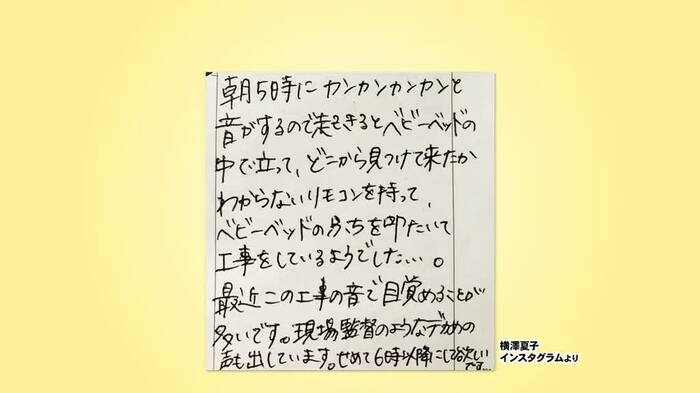 朝5時にカンカンカンカンと
音がするので起きるとベビーベッドの
中で立って、どこから見つけて来たか
わからないリモコンを持って、
ベビーベッドのふちを叩たいて
工事をしているようでした…。
最近この工事の音で目覚めることが
多いです。現場監督のようなデカめの
声も出しています。せめて6時以降にして欲しい
です…
横澤夏子
インスタグラムより